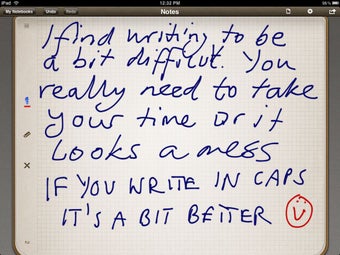 iPad
12:02 PM
My Notebooks
Undo
Redo
Notes
I find writing to be
a bit difficult. You
really need to take
your time or it
looks a mess
IF YOU WRITE IN CAPS
IT'S A BIT BETTER